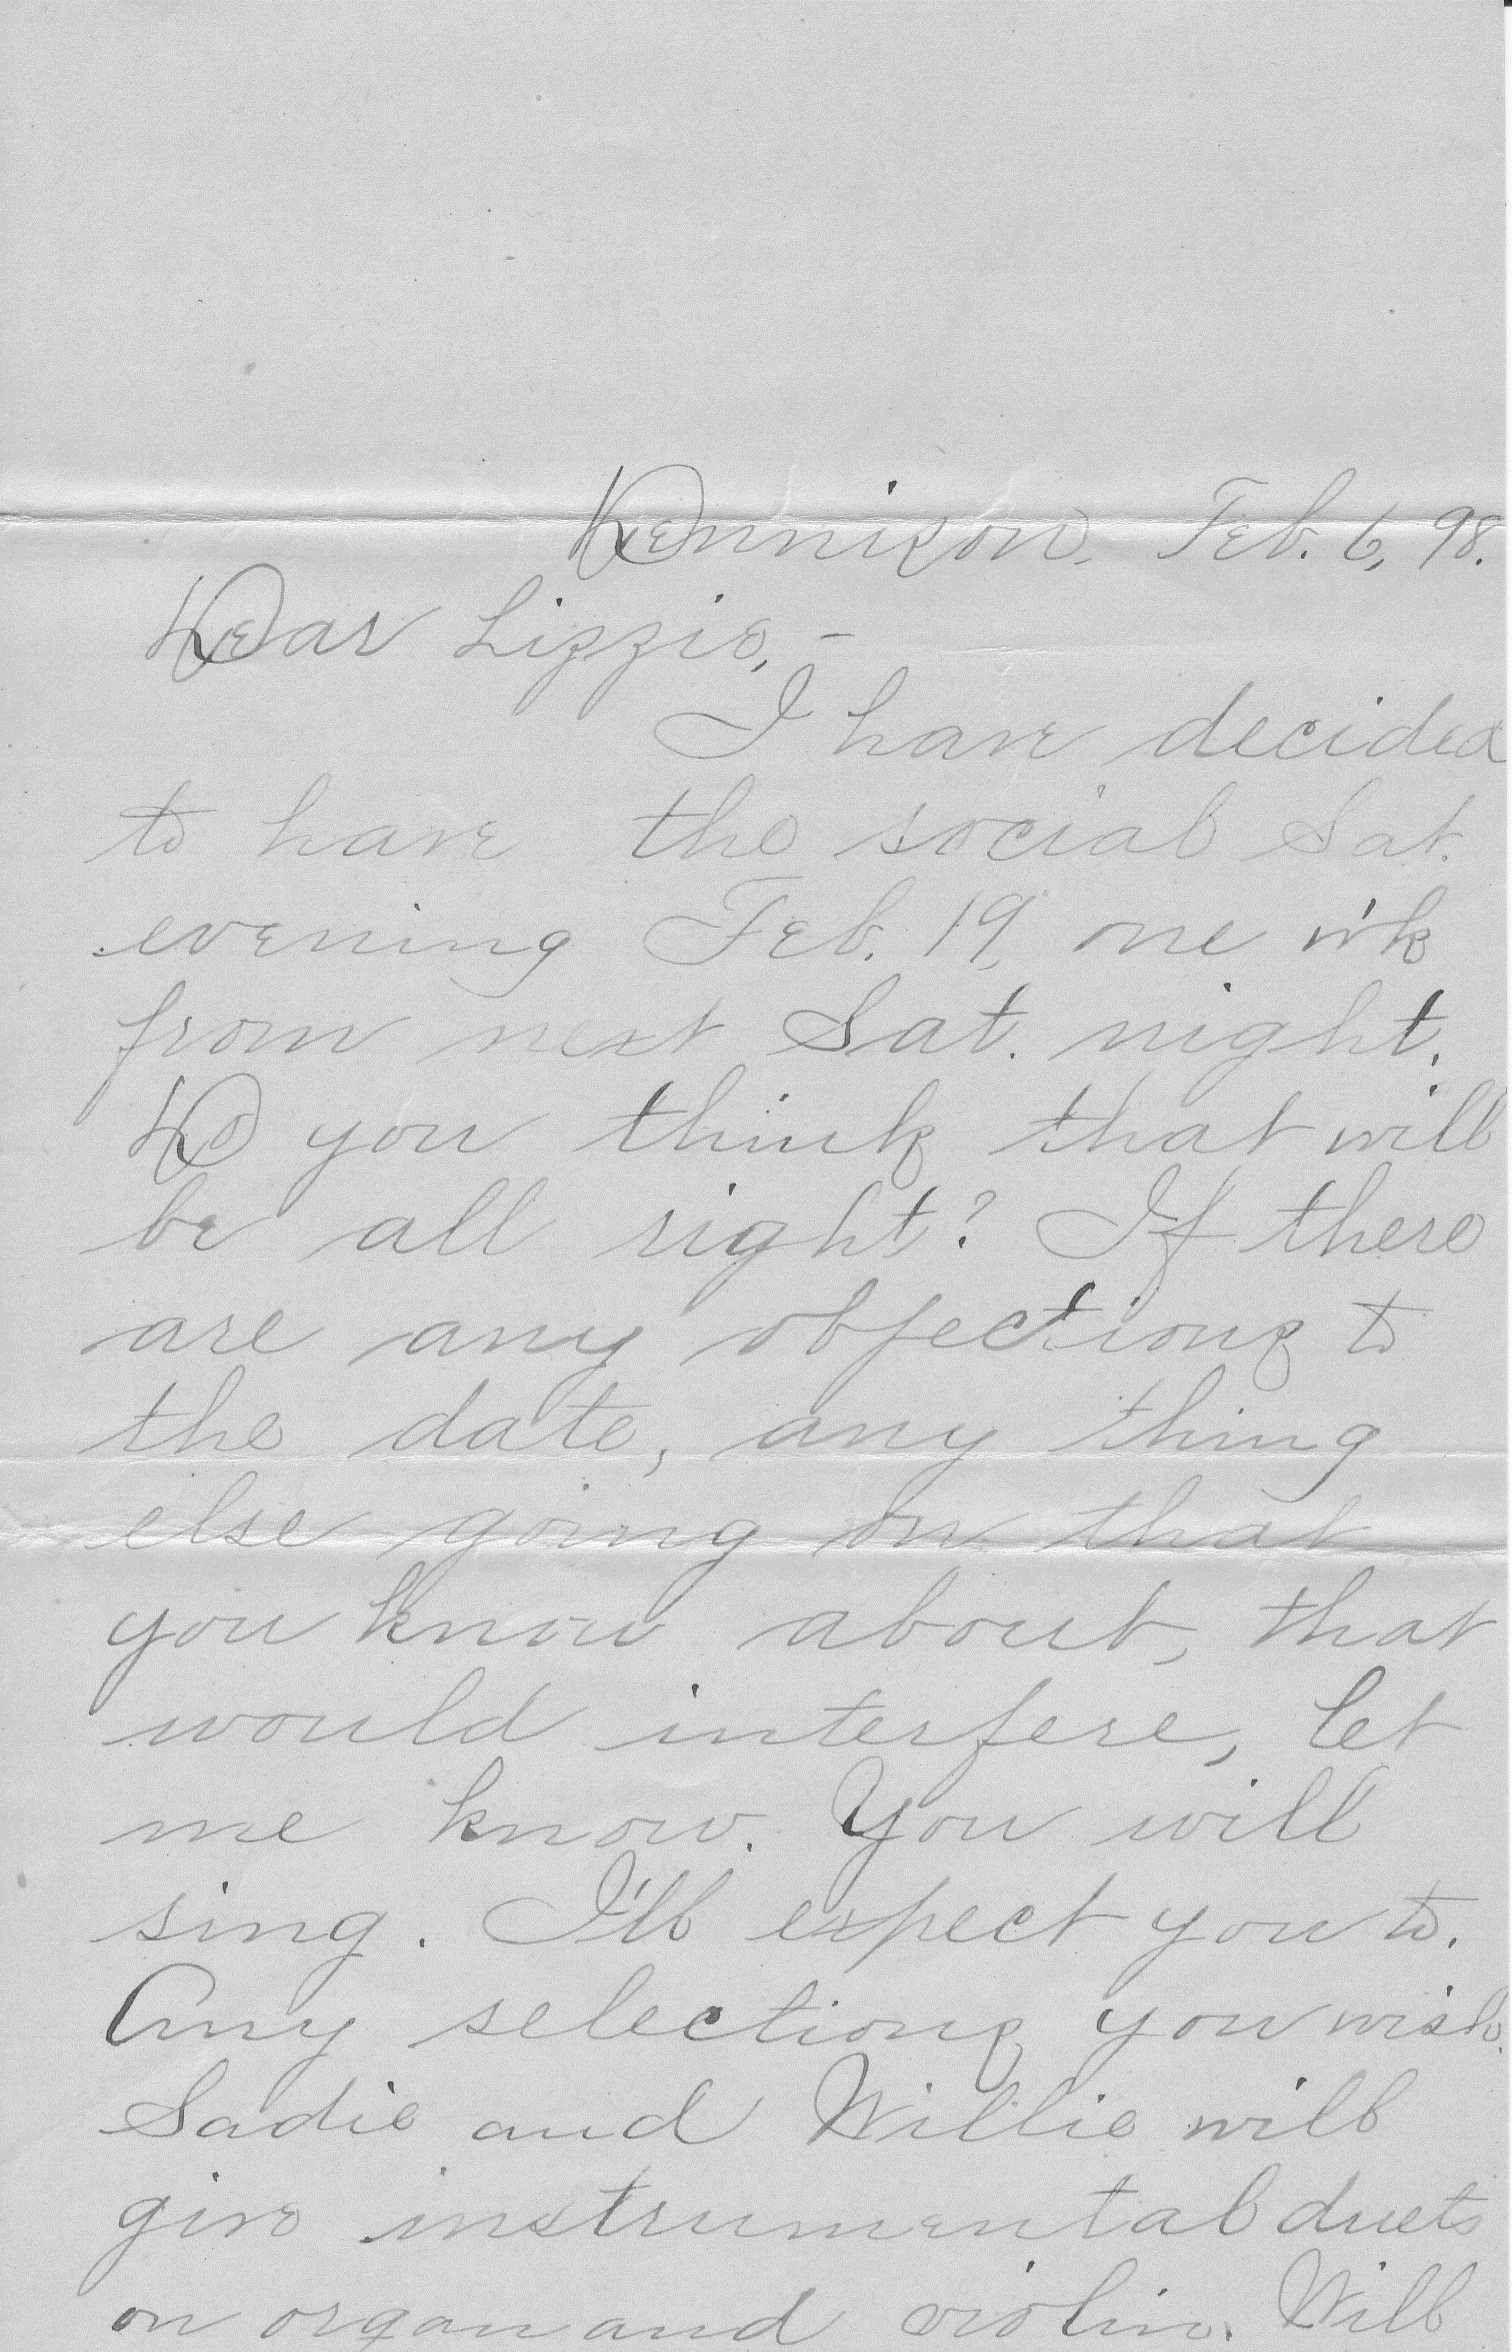 Dennison, Feb. 6, 98.
Dear Lizzie, -
I have decided
to have the social Sat.
evening Feb. 19, one w'k
from next Sat. night.
Do you think that will
be all right? If there
are any objections to
the date, any thing
else going on that
you know about, that
would interfere, let
me know. You will
sing. I'll expect you to.
Any selections you wish.
Sadie and Willie will
give instrumental duets
on organ and violin. Will